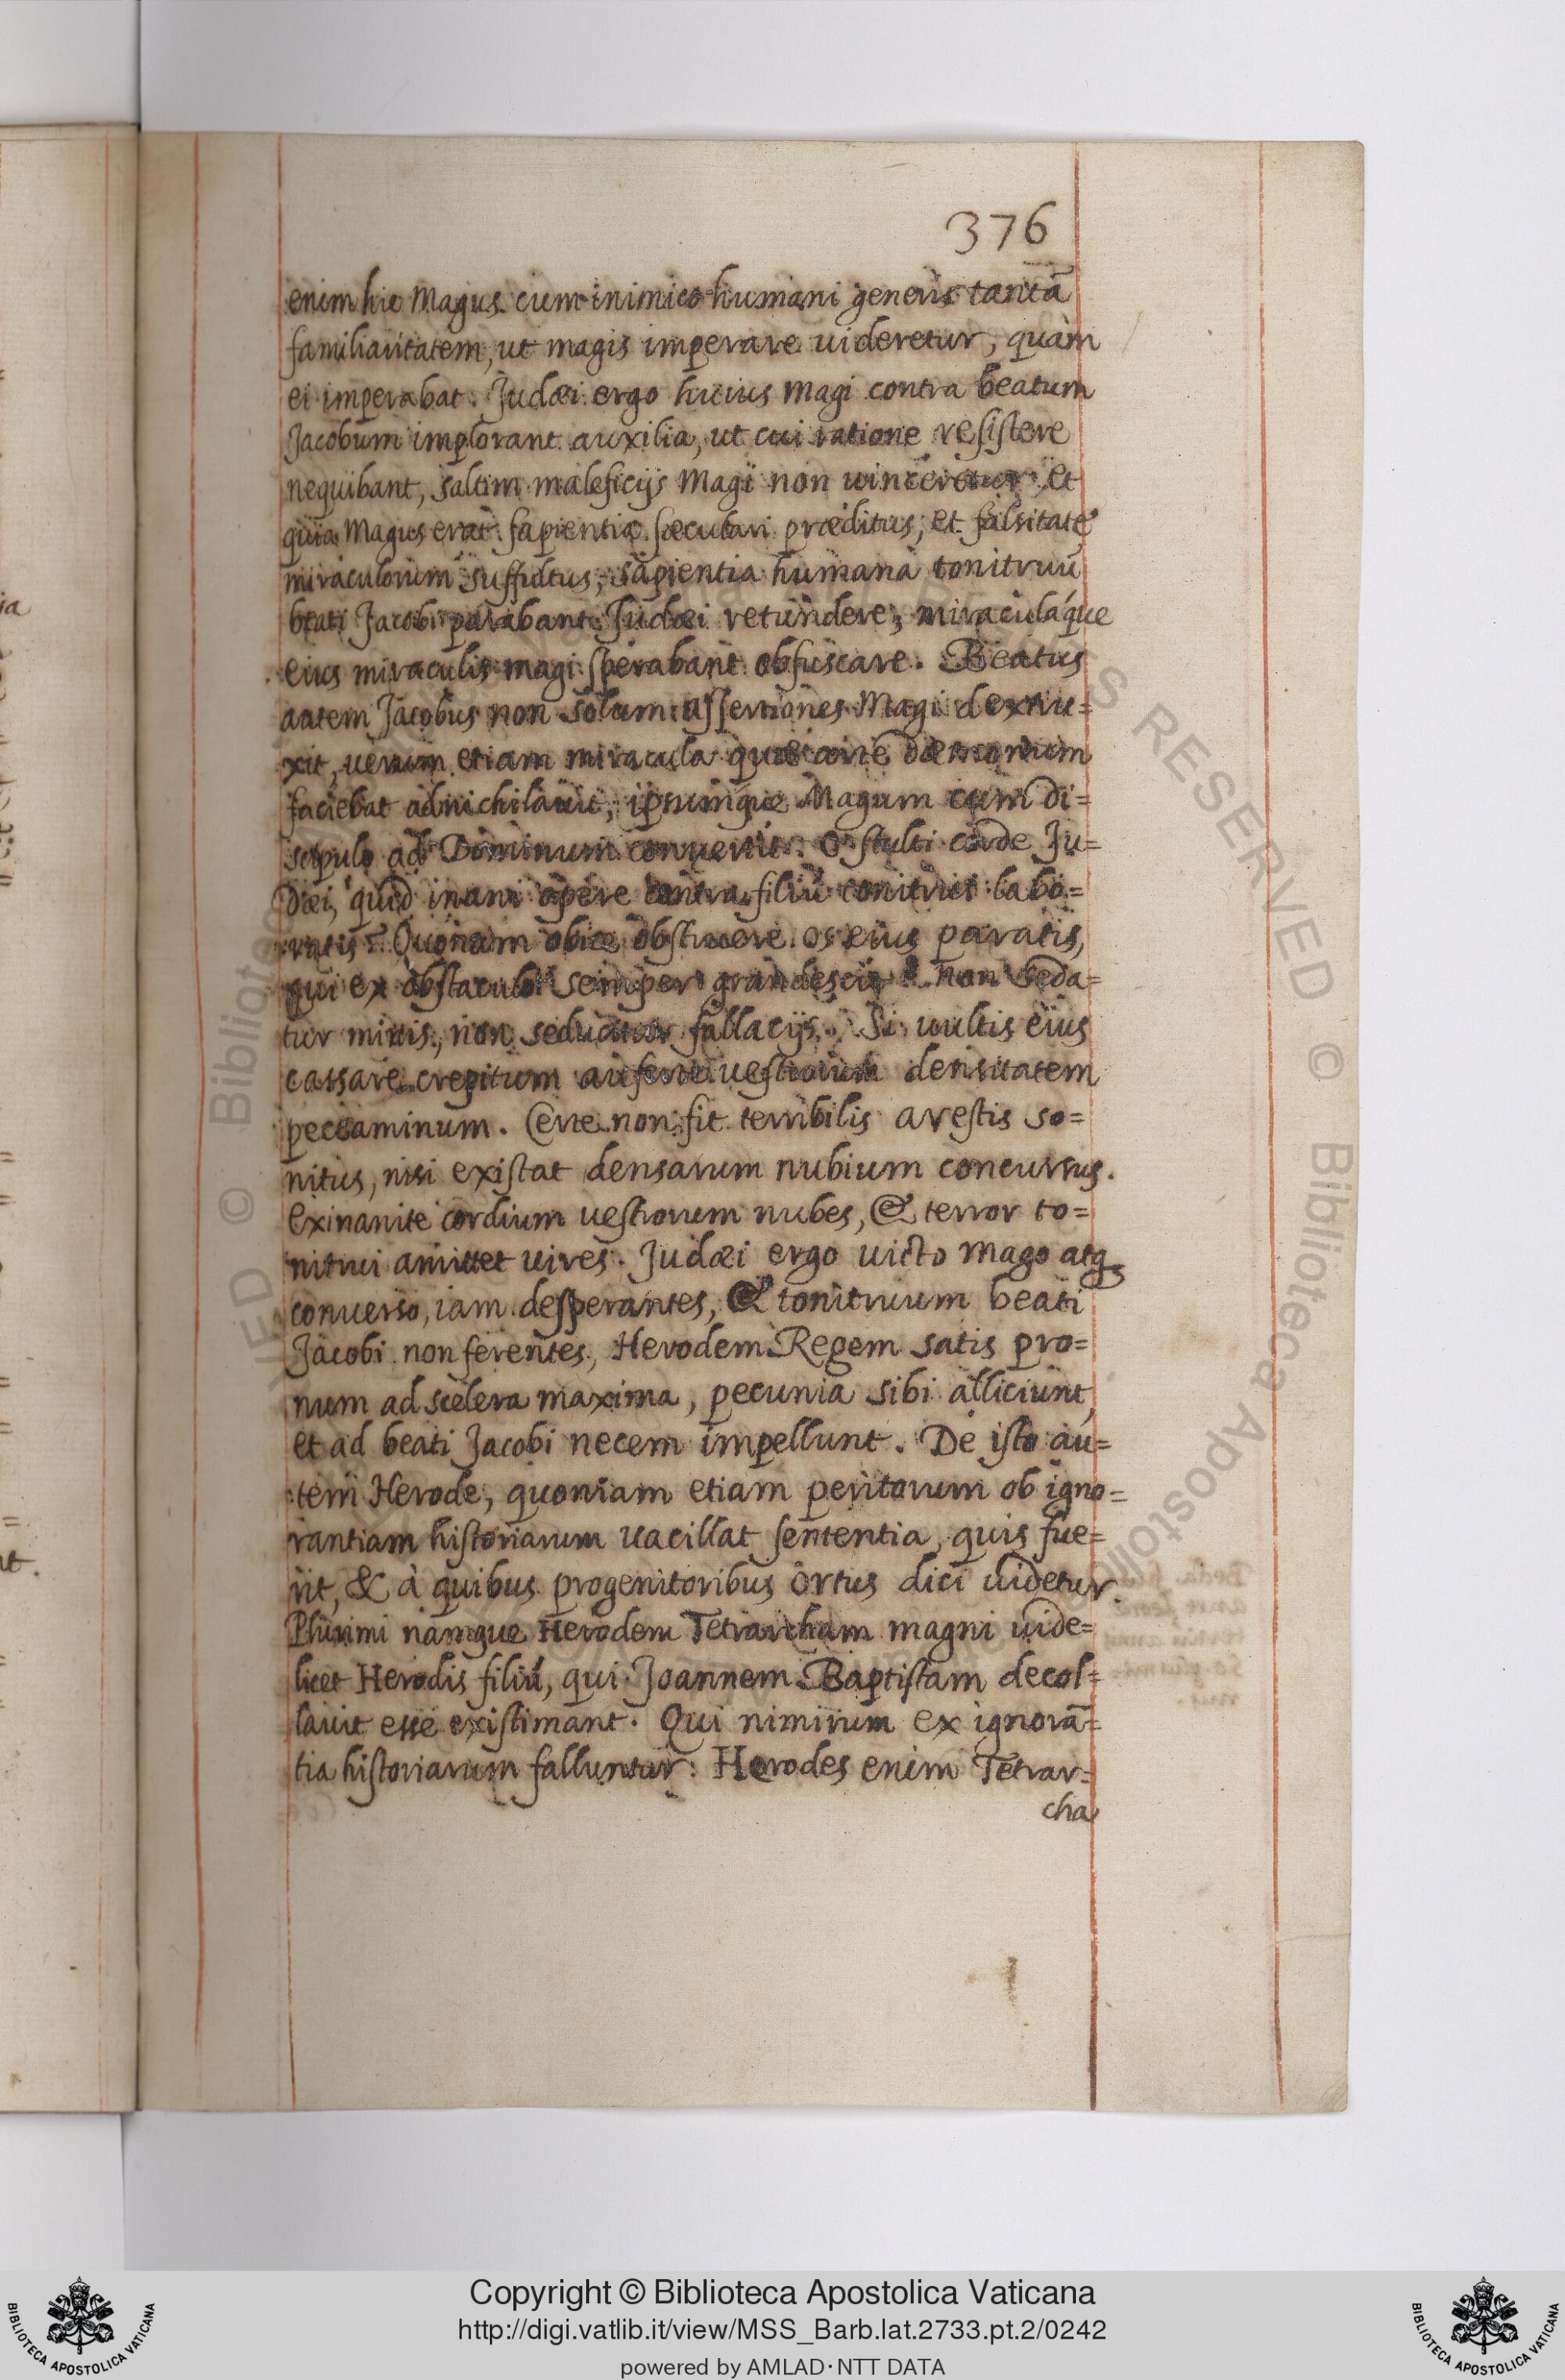 376
enim hic Magus cum inimico humani generis tantā
familiaritatem, ut magis imperare uideretur, quàm
ei imperabat. Judæi ergo huius Magi contra beatum
Jacobum implorant auxilia, ut cui ratione resistere
nequibant, saltim maleficijs Magi non uinceretur et
quia Magus erat sapientia sæculari præditus, et falsitate
miraculorum suffultus, sapientia humana tonitruū
beati Jacobi parabant Judæi retundere, miraculáque
eius miraculis magi sperabant obfuscare. Beatus
autem Jacobus non solum assertiones Magi dextru=
xit, uerum etiam miracula quæ arte dæmonum
faciebat adnichilauit, ipsumque Magum cum di=
scipulo ad Dominum conuertit. O stulti corde Ju=
dæi, quid inani opere contra filiū tonitrui labo=
ratis? Quonam obice obstruere os eius paratis,
qui ex obstaculo semper grandescit? non seda=
tur minis, non seducitur fallacijs. Si uultis eius
cassare crepitum auferte uestrorum densitatem
peccaminum. Certe non fit terribilis a uestis so=
nitus, nisi existat densarum nubium concursus.
Exinanite cordium uestrorum nubes, & terror to=
nitrui amittet uires. Judæi ergo uicto Mago atq
conuerso, iam desperantes, & tonitruum beati
Jacobi non ferentes, Herodem Regem satis pro=
num ad scelera maxima, pecunia sibi alliciunt,
et ad beati Jacobi necem impellunt. De isto au=
tem Herode, quoniam etiam peritorum ob igno=
rantiam historiarum uacillat sententia, quis fue=
rit, & à quibus progenitoribus ortus dici uidetur.
Plurimi namque Herodem Tetrarcham magni uide=
licet Herodis filiū, qui Joannem Baptistam decol=
lauit esse existimant. Qui nimirum ex ignorā=
tia historiarum falluntur: Herodes enim Tetrar=
cha
Copyright © Biblioteca Apostolica Vaticana
http://digi.vatlib.it/view/MSS_Barb.lat.2733.pt.2/0242
powered by AMLAD·NTT DATA
BIBLIOTECA APOSTOLICA VATICANA
BIBLIOTECA APOSTOLICA VATICANA